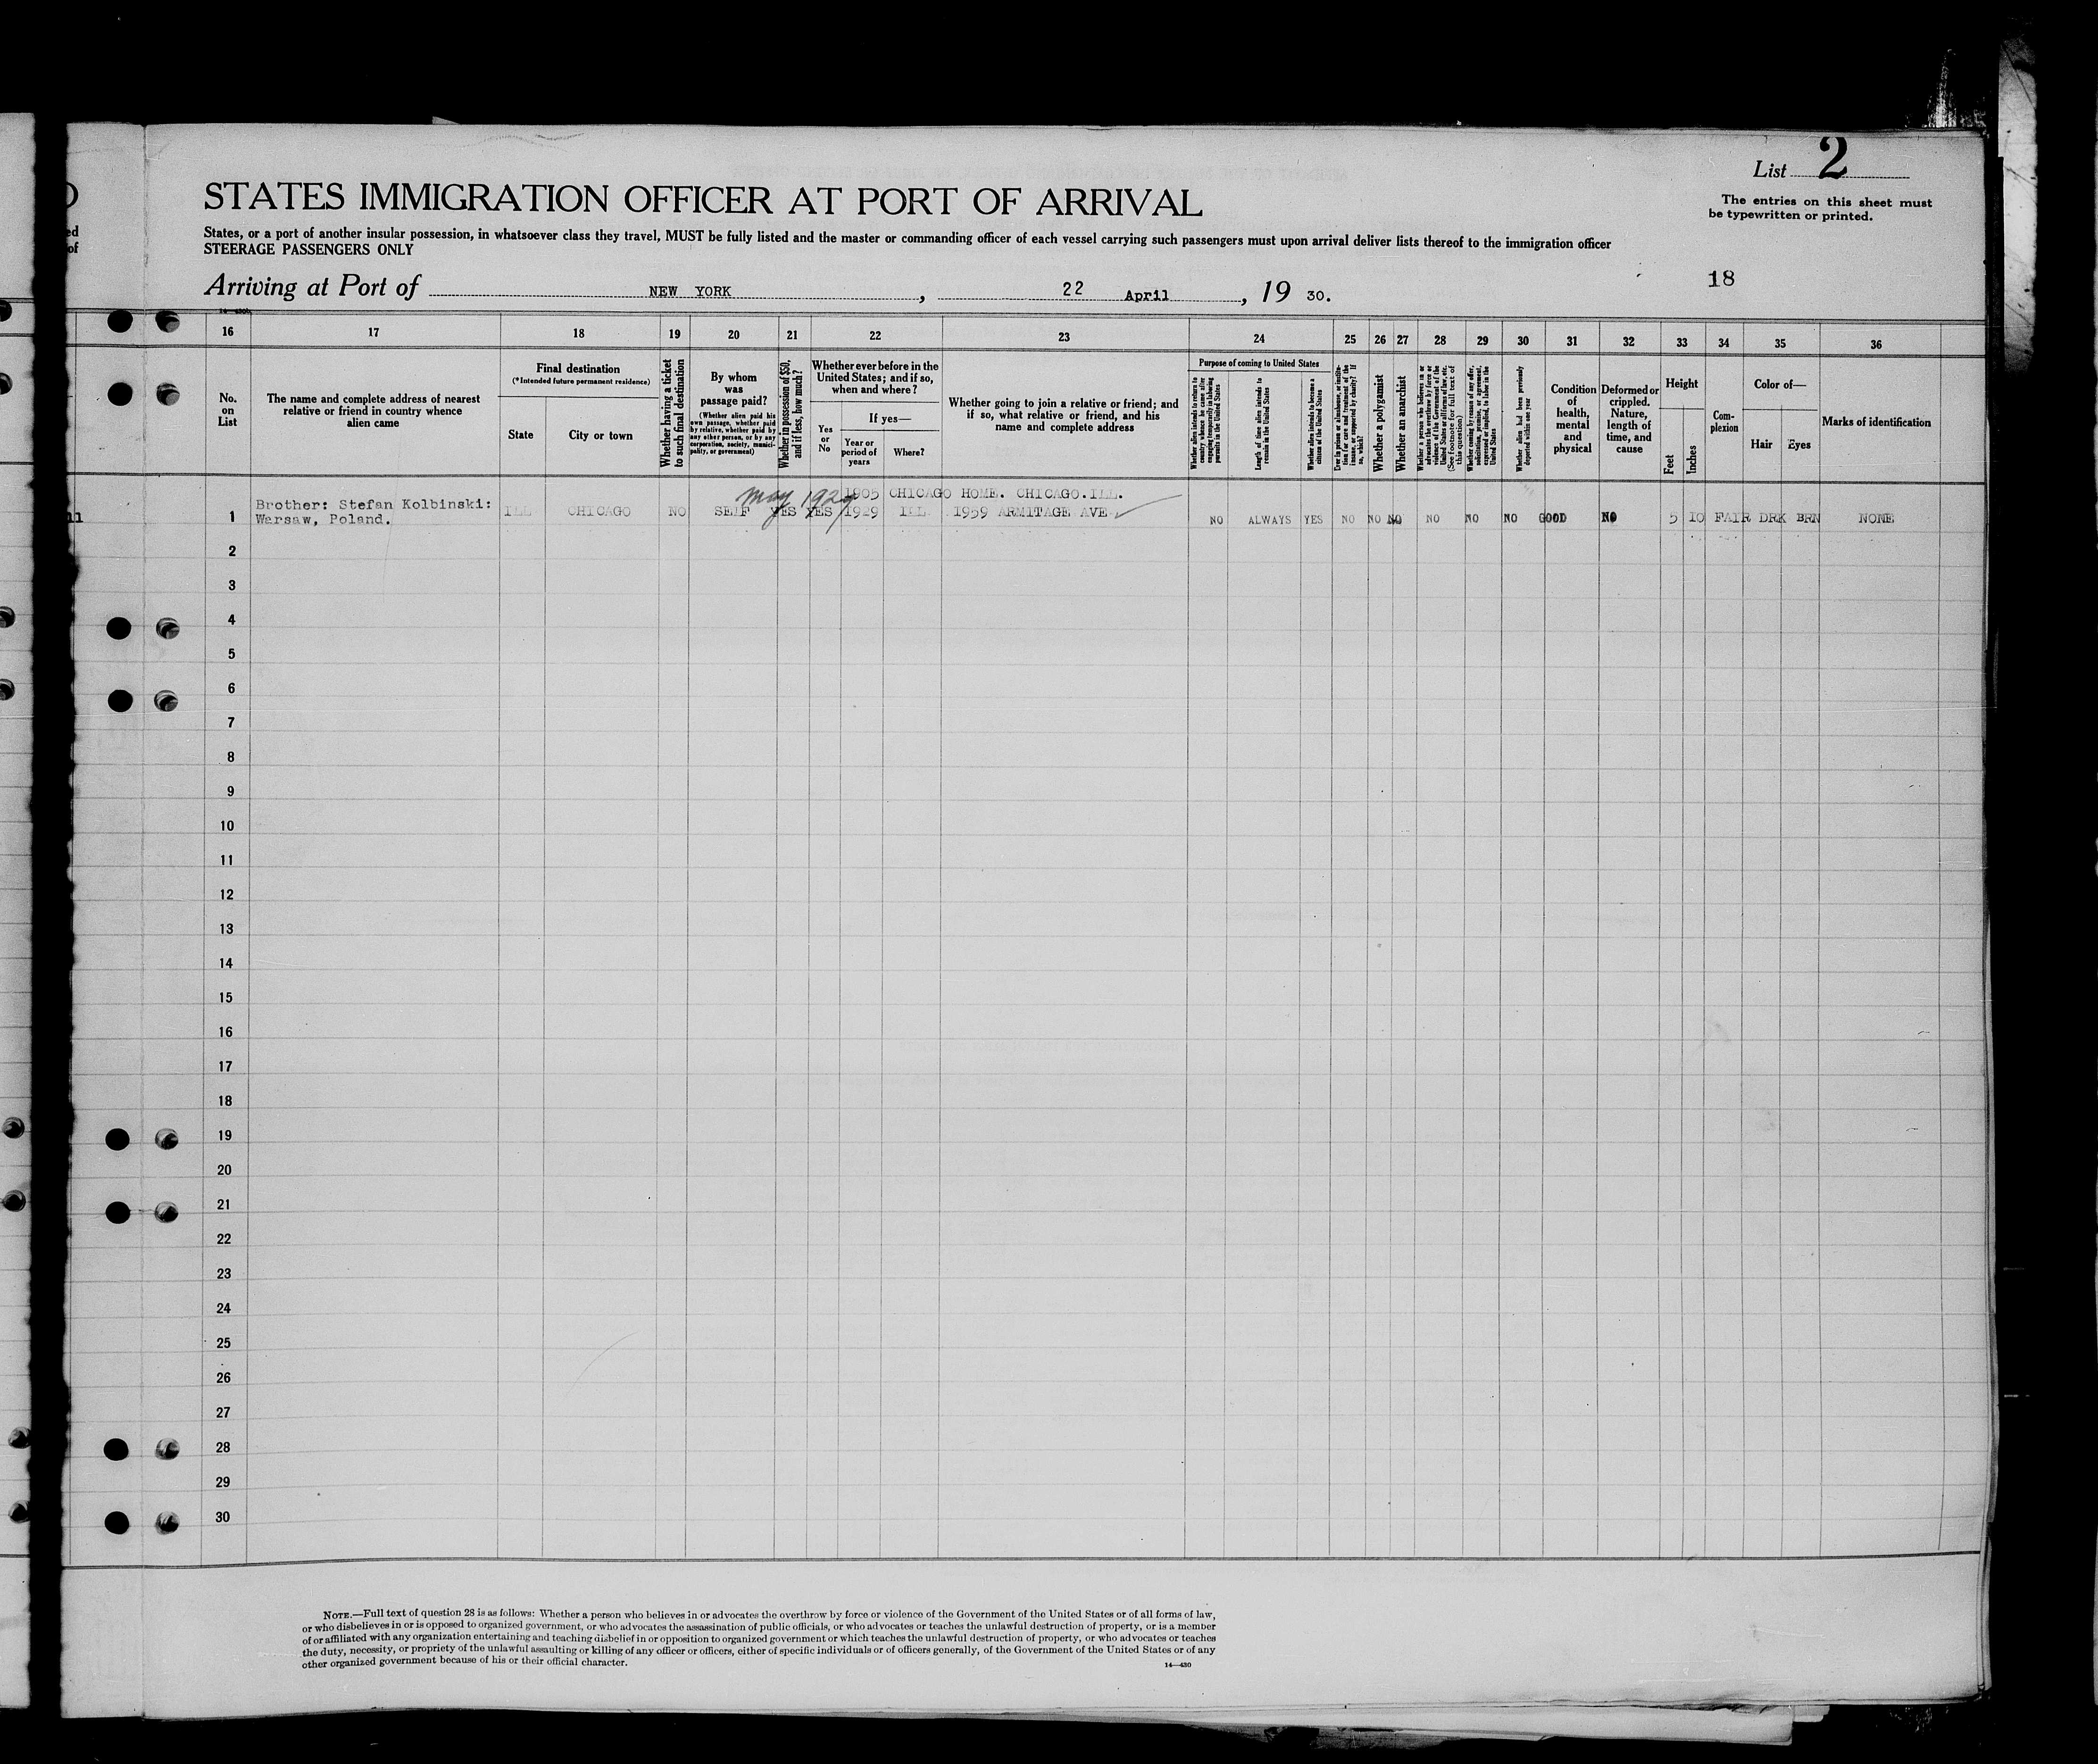 List 2
The entries on this sheet must
be typewritten or printed.
STATES IMMIGRATION OFFICER AT PORT OF ARRIVAL
States, or a port of another insular possession, in whatsoever class they travel, MUST be fully listed and the master or commanding officer of each vessel carrying such passengers must upon arrival deliver lists thereof to the immigration officer
STEERAGE PASSENGERS ONLY
18
Arriving at Port of NEW YORK, 22 April, 19 30.
16 17 18 19 20 21 22 23 24 25 26 27 28 29 30 31 32 33 34 35 36
No.
on
List
The name and complete address of nearest
relative or friend in country whence
alien came
Final destination
(*Intended future permanent residence)
State
City or town
Whether having a ticket
to such final destination
By whom
was
passage paid?
(Whether alien paid his
own passage, whether paid
by relative, whether paid by
any other person, or by any
corporation, society, munici-
pality, or government)
Whether in possession of $50,
and if less, how much?
Whether ever before in the
United States; and if so,
when and where?
Yes
or
No
If yes—
Year or
period of
years
Where?
Whether going to join a relative or friend; and
if so, what relative or friend, and his
name and complete address
Purpose of coming to United States
Whether alien intends to return to
country whence he came after
engaging temporarily in laboring
pursuits in the United States
Length of time alien intends to
remain in the United States
Whether alien intends to become a
citizen of the United States
Ever in prison or almshouse, or institu-
tion for care and treatment of the
insane, or supported by charity? If
so, which?
Whether a polygamist
Whether an anarchist
Whether a person who believes in or
advocates the overthrow by force or
violence of the Government of the
United States or all forms of law, etc.
(See footnote for full text of
this question)
Whether coming by reason of any offer,
solicitation, promise, or agreement,
expressed or implied, to labor in the
United States
Whether alien had been previously
deported within one year
Condition
of
health,
mental
and
physical
Deformed or
crippled.
Nature,
length of
time, and
cause
Height
Feet
Inches
Com-
plexion
Color of—
Hair
Eyes
Marks of identification
may 1929 1905 CHICAGO HOME. CHICAGO.ILL.
Brother: Stefan Kolbinski:
Warsaw, Poland.
1 ILL CHICAGO NO SELF YES YES 1929 ILL. 1959 ARMITAGE AVE NO ALWAYS YES NO NO NO NO NO NO GOOD NO 5 10 FAIR DRK BRN NONE
2
3
4
5
6
7
8
9
10
11
12
13
14
15
16
17
18
19
20
21
22
23
24
25
26
27
28
29
30
NOTE.—Full text of question 28 is as follows: Whether a person who believes in or advocates the overthrow by force or violence of the Government of the United States or of all forms of law,
or who disbelieves in or is opposed to organized government, or who advocates the assassination of public officials, or who advocates or teaches the unlawful destruction of property, or is a member
of or affiliated with any organization entertaining and teaching disbelief in or opposition to organized government or which teaches the unlawful destruction of property, or who advocates or teaches
the duty, necessity, or propriety of the unlawful assaulting or killing of any officer or officers, either of specific individuals or of officers generally, of the Government of the United States or of any
other organized government because of his or their official character.
14—430